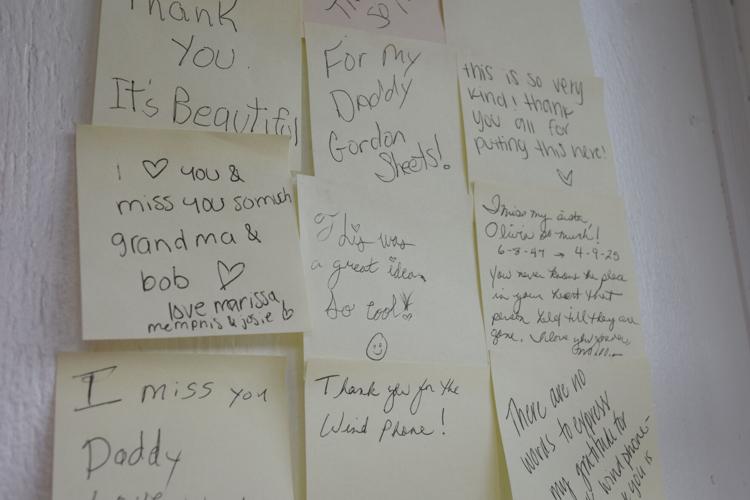 Thank
You.
It's Beautiful
For my
Daddy
Gordon
Sheets!
this is so very
kind! thank
you all for
putting this here!
I ♡ you &
miss you so much
grandma &
bob ♡
love marissa
memphis & josie
This was
a great idea,
So cool!
I miss my sister,
Olivia so much!
6-8-47 → 4-9-25
You never know the place
in your heart that
person held till they are
gone. I love you
I miss you
Daddy
Thank you for the
Wind Phone!
There are no
words to express
my gratitude for
wind phone-
you is